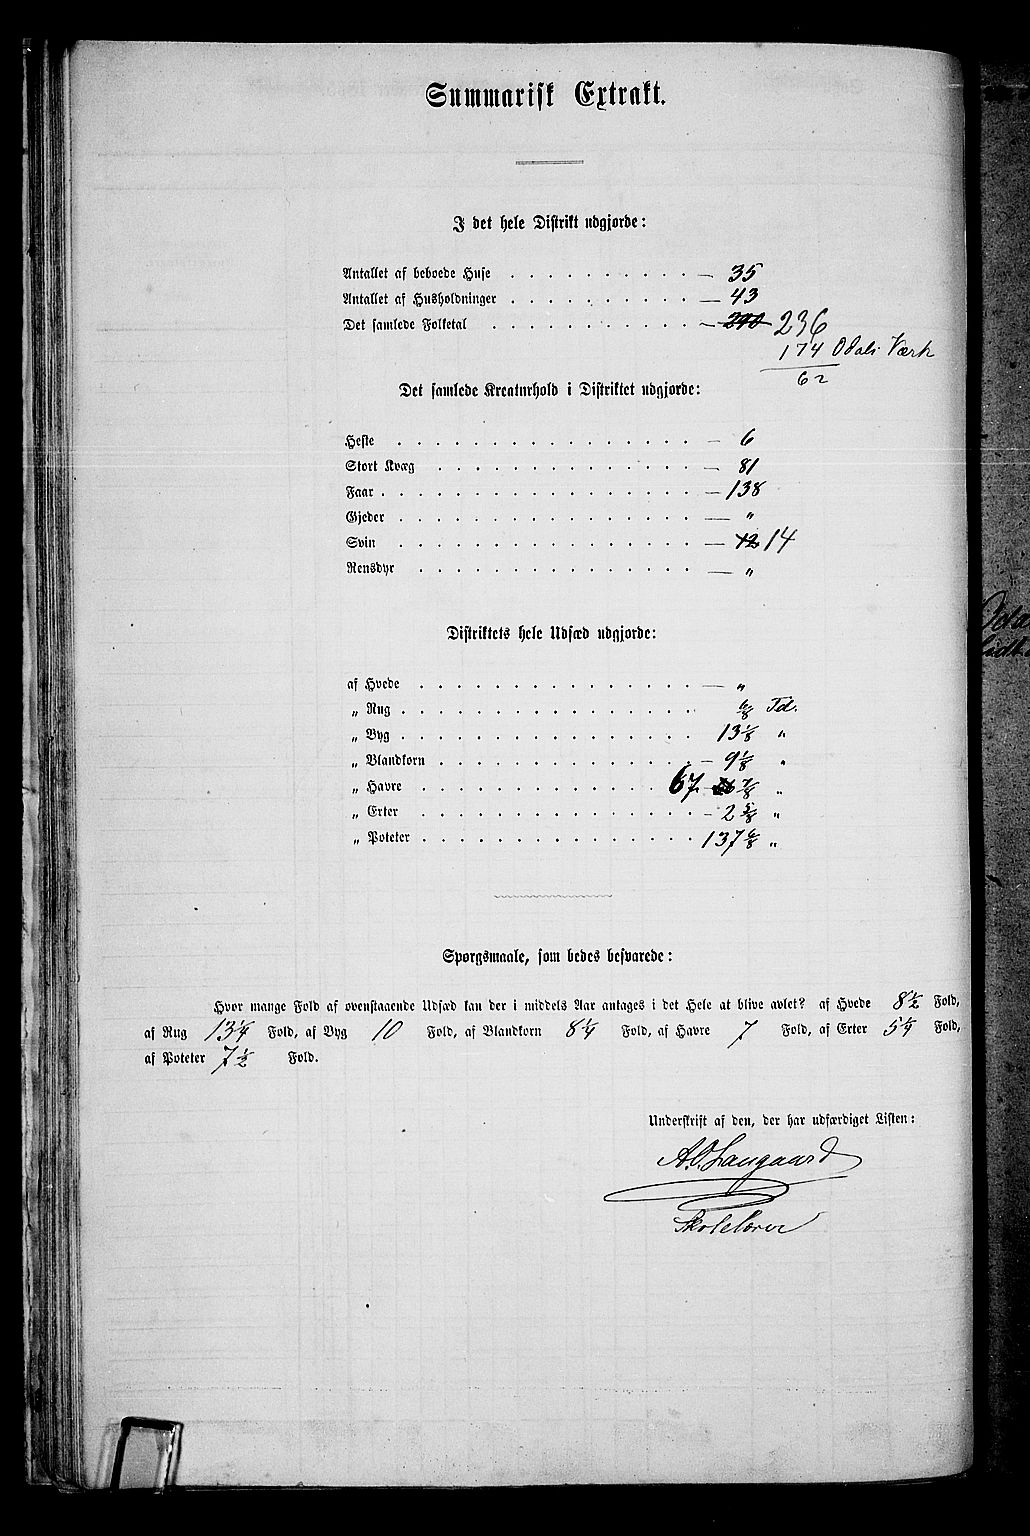 Summarisk Extrakt.
I det hele Distrikt udgjorde:
Antallet af beboede Huse . . . . . . . . . . — 35
Antallet af Husholdninger . . . . . . . . . . — 43
Det samlede Folketal . . . . . . . . . . — 240 236
174 Odals Værk
62
Det samlede Kreaturhold i Distriktet udgjorde:
Heste . . . . . . . . . . — 6
Stort Kvæg . . . . . . . . . . — 81
Faar . . . . . . . . . . — 138
Gjeder . . . . . . . . . . — "
Svin . . . . . . . . . . — 12 14
Rensdyr . . . . . . . . . . — "
Distriktets hele Udsæd udgjorde:
af Hvede . . . . . . . . . . — "
„ Rug . . . . . . . . . . 6/8 Td.
„ Byg . . . . . . . . . . 13 1/8 "
„ Blandkorn . . . . . . . . . . — 9 1/8 "
„ Havre . . . . . . . . . . 67 7/8 "
„ Erter . . . . . . . . . . — 2 3/8 "
„ Poteter . . . . . . . . . . 137 6/8 "
Spørgsmaale, som bedes besvarede:
Hvor mange Fold af ovenstaaende Udsæd kan der i middels Aar antages i det Hele at blive avlet? af Hvede 8 1/2 Fold,
af Rug 13 1/4 Fold, af Byg 10 Fold, af Blandkorn 8 1/4 Fold, af Havre 7 Fold, af Erter 5 1/4 Fold,
af Poteter 7 1/2 Fold.
Underskrift af den, der har udfærdiget Listen:
A. O. Langaard
Skolelærer